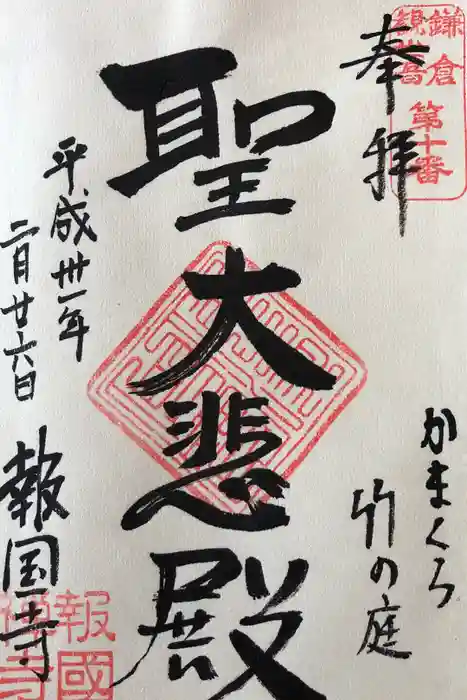 奉拝
鎌倉
観世音
第十番
かまくら
竹の庭
聖大悲殿
平成卅一年
二月廿六日
報国寺
報國
禅寺